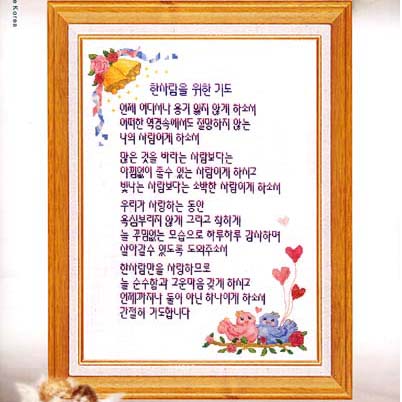 한사람을 위한 기도
언제 어디서나 용기 잃지 않게 하소서
어떠한 역경속에서도 절망하지 않는
나의 사람이게 하소서
많은 것을 바라는 사람보다는
아낌없이 줄수 있는 사람이게 하시고
빛나는 사람보다는 소박한 사람이게 하소서
우리가 사랑하는 동안
욕심부리지 않게 그리고 착하게
늘 꾸밈없는 모습으로 하루하루 감사하며
살아갈수 있도록 도와주소서
한사람만을 사랑하므로
늘 순수함과 고운마음 갖게 하시고
언제까지나 둘이 아닌 하나이게 하소서
간절히 기도합니다
e Korea